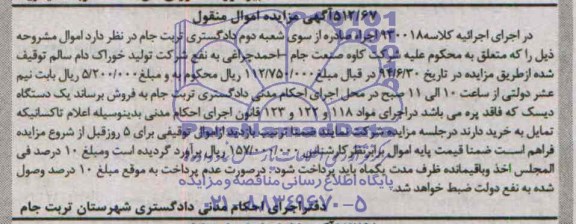 ۵۱۲/۶۷ آگهی مزایده اموال منقول
در اجرای اجرائیه کلاسه ۹۳۰۰۱۸ اجراء صادره از سوی شعبه دوم دادگستری تربت جام در نظر دارد اموال مشروحه
ذیل را که متعلق به محکوم علیه شرکت کاوه صنعت جام -احمدچراغی به نفع شرکت تولید خوراک دام سالم توقیف
شده ازطریق مزایده در تاریخ ۹۴/۶/۳۰ در قبال مبلغ ۱۱۲/۷۵۰/۰۰۰ ریال محکوم به و مبلغ ۵/۲۰۰/۰۰۰ ریال بابت نیم
عشر دولتی از ساعت ۱۰ الی ۱۱ صبح در محل اجرای احکام مدنی دادگستری تربت جام به فروش برساند یک دستگاه
دیسک که فاقد پره می باشد دراجرای مواد ۱۱۸ و ۱۲۲ و ۱۲۳ قانون اجرای احکام مدنی بدینوسیله اعلام تاکسانیکه
تمایل به خرید دارند درجلسه مزایده شرکت نمایند ضمنا ترتیب بازدید ازاموال توقیفی برای ۵ روزقبل از شروع مزایده
فراهم است ضمنا قیمت پایه اموال برابرنظرکارشناس ریال برآورد گردیده است ومبلغ ۱۰ درصد فی
المجلس اخذ وباقیمانده ظرف مدت یکماه باید پرداخت شود. درصورت عدم پرداخت به موقع مبلغ ۱۰ درصد وصول
شده به نفع دولت ضبط خواهد شد.
دفتراجرای احکام مدنی دادگستری شهرستان تربت جام
پایگاه اطلاع رسانی مناقصه و مزایده
۰۲۱-۸۸۳۴۹۶۷۰-۵